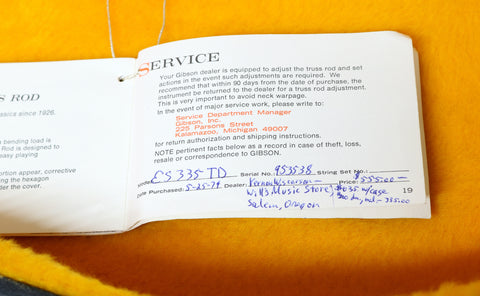 S ROD
ssics since 1926.
bending load is
Rod is designed to
easy playing
ortion appear, corrective
ng the hexagon
der the cover.
SERVICE
Your Gibson dealer is equipped to adjust the truss rod and set
actions in the event such adjustments are required. We
recommend that within 90 days from the date of purchase, the
instrument be returned to the dealer for a truss rod adjustment.
This is very important to avoid neck warpage.
In the event of major service work, please write to:
Service Department Manager
Gibson, Inc.
225 Parsons Street
Kalamazoo, Michigan 49007
for return authorization and shipping instructions.
NOTE pertinent facts below as a record in case of theft, loss,
resale or correspondence to GIBSON.
Model ES 335 TD Serial No. 953538 String Set No.:
Date Purchased: 5-25-74 Dealer: Price: $555.00
Wills Music Store, w/case
Salem, Oregon
19